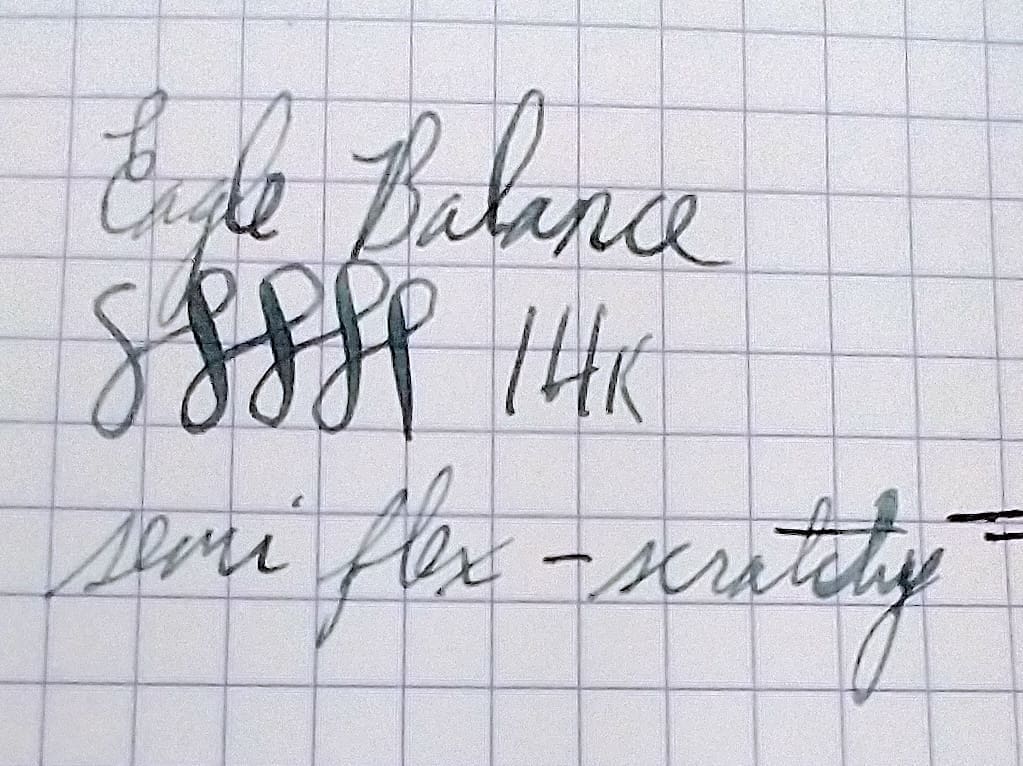 Eagle Balance
14K
semi flex - scratchy